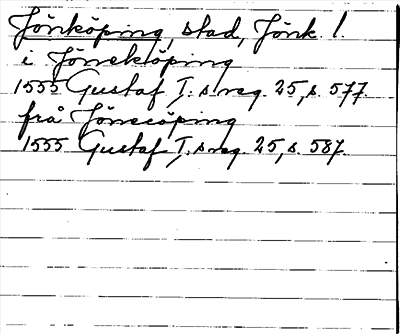 Jönköping, stad, Jönk. l.
i Jöneköping
1555 Gustaf I:s reg. 25, s. 577.
frå Jönecöping
1555 Gustaf I:s reg. 25, s. 587.